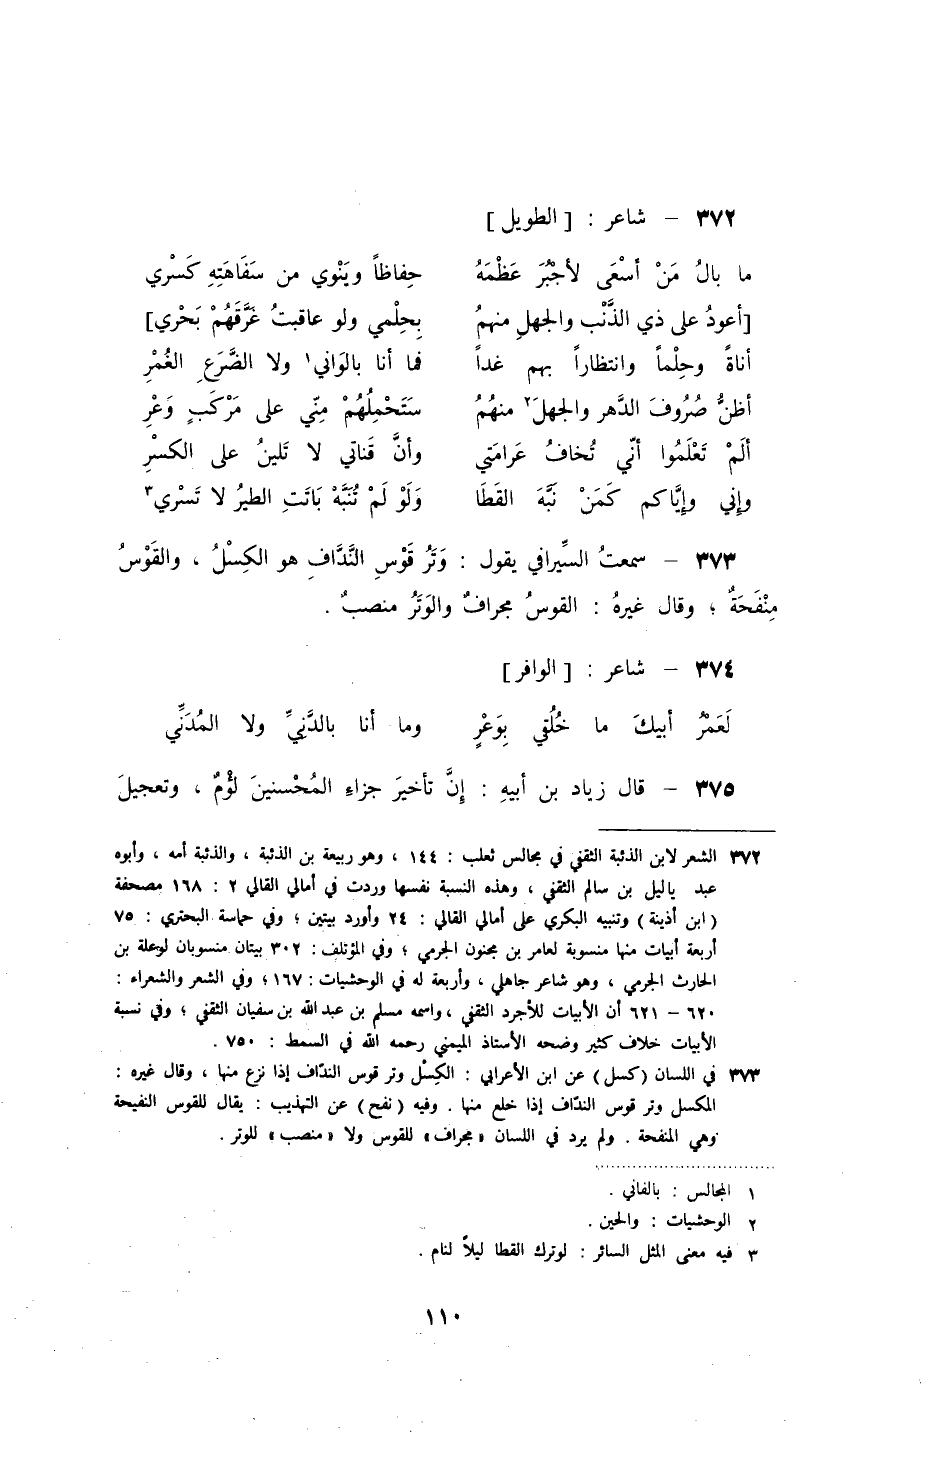 ٣٧٢ – شاعر : [ الطويل ]
ما بالُ مَنْ أسْعَى لأجْبُرَ عَظْمَهُ حِفاظاً ويَنْوي من سَفَاهَتِهِ كَسْري
[أعودُ على ذي الذَّنْب والجهلِ منهمُ بِحِلْمي ولو عاقبتُ غَرَّقَهُمْ بَحْري]
أناةً وحِلْماً وانتظاراً بهم غداً فما أنا بالوَاني١ ولا الضَّرَعِ الغُمْرِ
أظنُّ صُرُوفَ الدَّهر والجهلَ٢ منهُمُ سَتَحْمِلُهُمْ مِنِّي على مَرْكَبٍ وَعْرِ
ألَمْ تَعْلَمُوا أنّي تُخافُ عَرامَتي وأنَّ قَناتي لا تَلينُ على الكسْرِ
وإني وإيَّاكم كَمَنْ نَبَّهَ القَطَا وَلَوْ لَمْ تُنَبَّهْ بَاتَتِ الطيرُ لا تَسْري٣
٣٧٣ – سمعتُ السِّيرافي يقول : وَتَرُ قَوْسِ النَّدَّافِ هو الكِسْلُ ، والقَوْسُ
مِنْفَحَةٌ ؛ وقال غيرهُ : القوسُ مجرافٌ والوَتَرُ منصبٌ .
٣٧٤ – شاعر : [ الوافر ]
لَعَمْرُ أبيكَ ما خُلُقي بِوَعْرٍ وما أنا بالدَّنِيِّ ولا المُدَنِّي
٣٧٥ – قال زياد بن أبيهِ : إنَّ تأخيرَ جزاءِ المُحْسنينَ لُؤْمٌ ، وتعجيلَ
٣٧٢ الشعر لابن الذئبة الثقفي في مجالس ثعلب : ١٤٤ ، وهو ربيعة بن الذئبة ، والذئبة أمه ، وأبوه
عبد ياليل بن سالم الثقفي ، وهذه النسبة نفسها وردت في أمالي القالي ٢ : ١٦٨ مصحفة
( ابن أذينة ) وتنبيه البكري على أمالي القالي : ٢٤ وأورد بيتين ؛ وفي حماسة البحتري : ٧٥
أربعة أبيات منها منسوبة لعامر بن مجنون الجرمي ؛ وفي المؤتلف : ٣٠٢ بيتان منسوبان لوعلة بن
الحارث الجرمي ، وهو شاعر جاهلي ، وأربعة له في الوحشيات : ١٦٧ ؛ وفي الشعر والشعراء :
٦٢٠ – ٦٢١ أن الأبيات للأجرد الثقفي ، واسمه مسلم بن عبد الله بن سفيان الثقفي ؛ وفي نسبة
الأبيات خلاف كثير وضحه الأستاذ الميمني رحمه الله في السمط : ٧٥٠ .
٣٧٣ في اللسان ( كسل ) عن ابن الأعرابي : الكِسْل وتر قوس الندّاف إذا نزع منها ، وقال غيره :
المكسل وتر قوس الندّاف إذا خلع منها . وفيه ( نفح ) عن التهذيب : يقال للقوس النفيحة
وهي المنفحة . ولم يرد في اللسان «مجراف» للقوس ولا «منصب» للوتر .
١ المجالس : بالفاني .
٢ الوحشيات : والحين .
٣ فيه معنى المثل السائر : لو ترك القطا ليلاً لنام .
١١٠